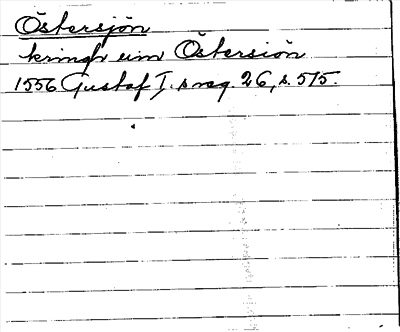 Östersjön
kringh um Östersiön
1556 Gustaf I:s reg. 26, s. 515.